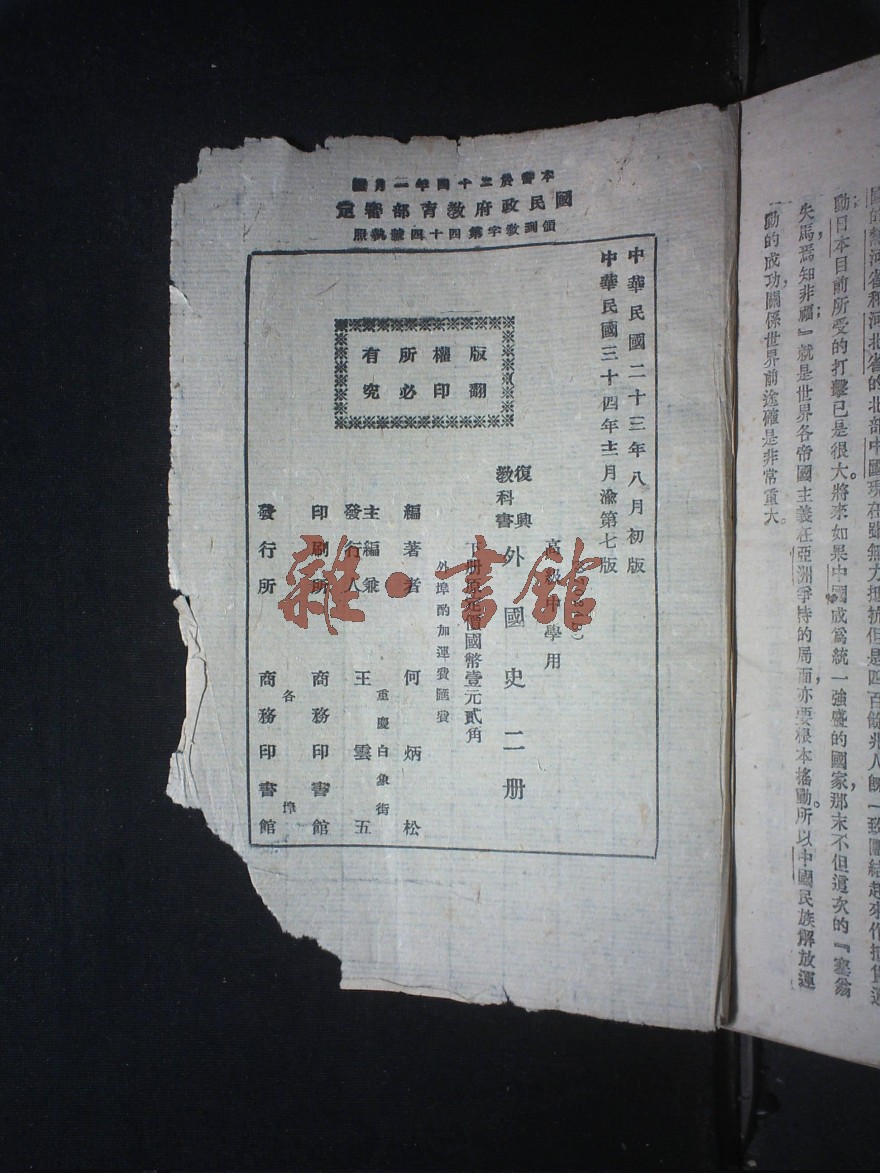 國的熱河省和河北省的北部中國現在雖無力抵抗但是四百餘兆人旣一致團結起來作抵貨運
動日本目前所受的打擊已是很大將來如果中國成爲統一強盛的國家那末不但這次的『塞翁
失馬焉知非福』就是世界各帝國主義在亞洲爭持的局面亦要根本搖動。所以中國民族解放運
動的成功關係世界前途確是非常重大。
本書於二十四年一月經
國民政府教育部審定
領到教字第四十四號執照
中華民國二十三年八月初版
中華民國三十四年十二月渝第七版
版權所有
翻印必究
高級中學用
復興
教科書
外國史二册
下册原定價國幣壹元貳角
外埠酌加運費匯費
編著者 何炳松
重慶白象街
主編兼
發行人 王雲五
印刷所 商務印書館
各埠
發行所 商務印書館
雜·書館